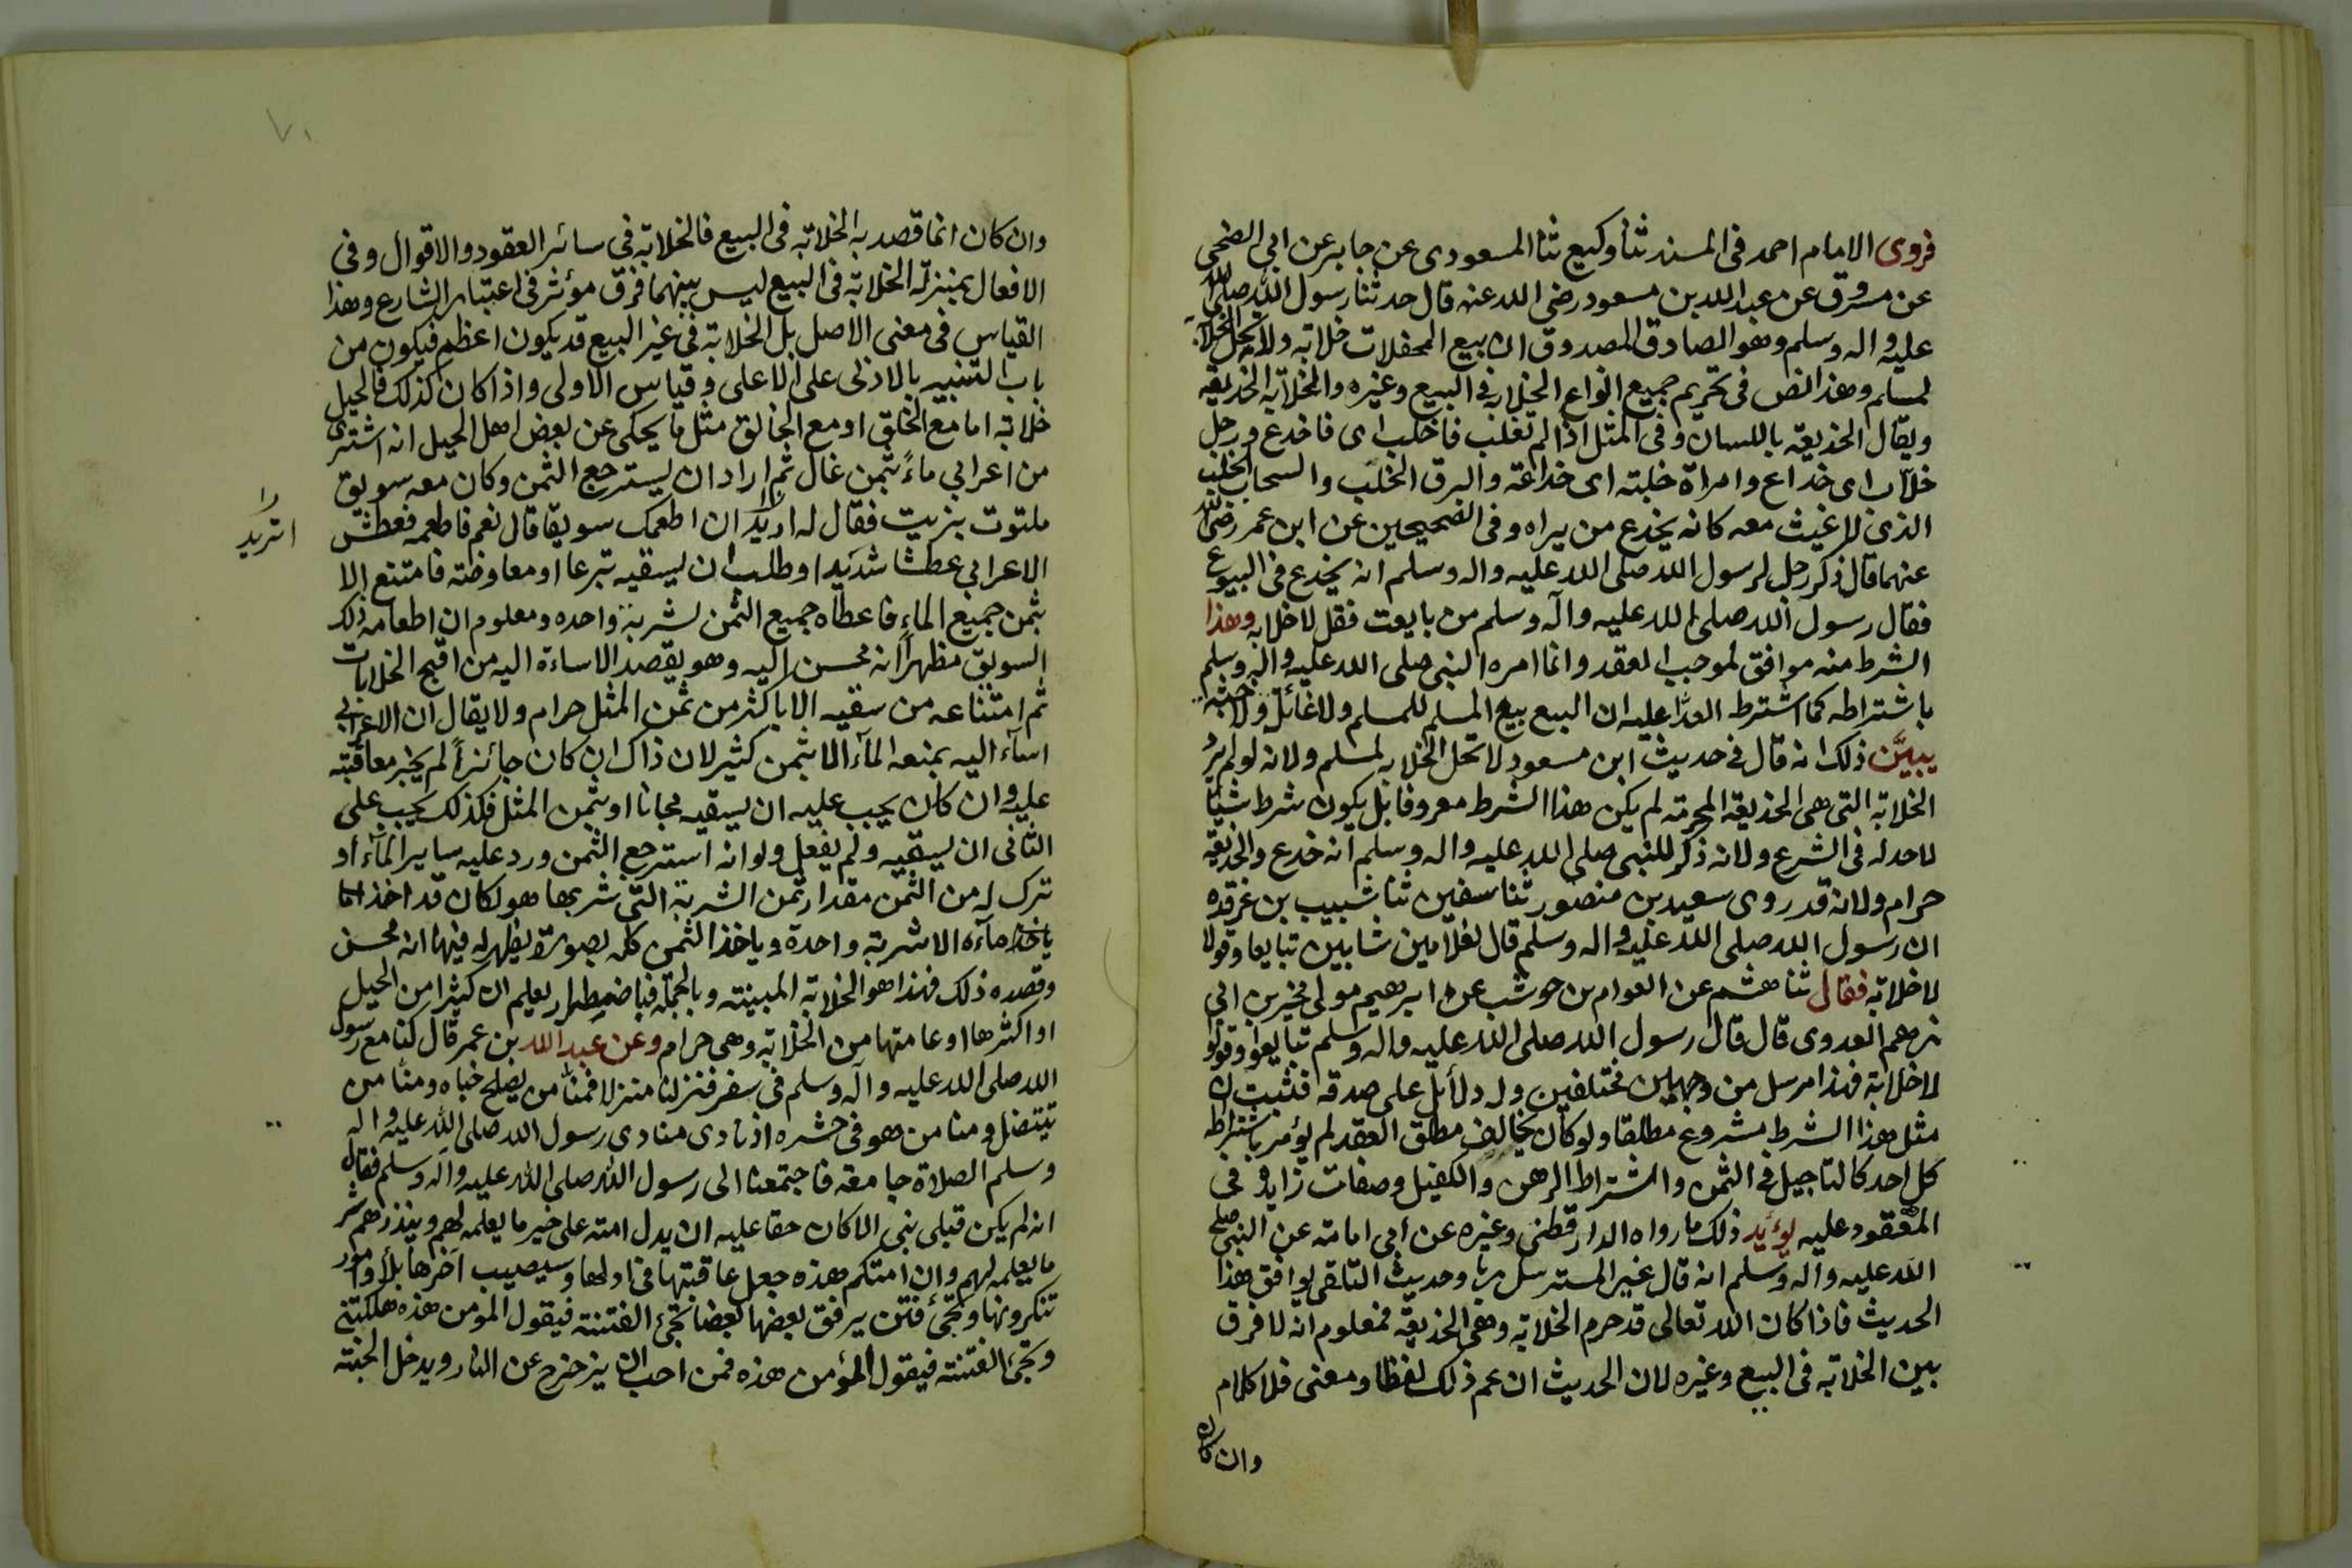 فروى الامام احمد فى المسند ثنا وكيع ثنا المسعودى عن جابر عن ابى الضحى
عن مسروق عن عبد الله بن مسعود رضى الله عنه قال حدثنا رسول الله صلى الله
عليه واله وسلم وهو الصادق المصدوق ان بيع المحفلات خلابه ولا تحل الخلابه
لمسلم وهذا نص فى تحريم جميع انواع الخلابه فى البيع وغيره والخلابة الخديعه
ويقال الخديعة باللسان وفى المثل اذا لم تغلب فاخلب اى فاخدع ورجل
خلاب اى خداع وامراة خلبته اى خداعة والبرق الخلب والسحاب الخلب
الذى لا غيث معه كانه يخدع من يراه وفى الصحيحين عن ابن عمر رضى الله
عنهما قال ذكر رجل لرسول الله صلى الله عليه واله وسلم انه يخدع فى البيوع
فقال رسول الله صلى الله عليه واله وسلم من بايعت فقل لا خلابه وهذا
الشرط منه موافق لموجب العقد وانما امره النبى صلى الله عليه واله وسلم
باشتراطه كما اشترط العدا عليه ان البيع بيع المسلم للمسلم ولا غائل ولا خبثه
يبيّن ذلك انه قال فى حديث ابن مسعود لا تحل الخلابه لمسلم ولانه لو لم يرد
الخلابة التى هى الخديعة المحرمة لم يكن هذا الشرط معروفا بل يكون شرط شيئا
لا حد له فى الشرع ولانه ذكر للنبى صلى الله عليه واله وسلم انه خدع والخديعة
حرام ولانه قد روى سعيد بن منصور ثنا سفين ثنا شبيب بن غرقده
ان رسول الله صلى الله عليه واله وسلم قال لغلامين شابين تبايعا وقولا
لا خلابة فقال ثنا هشم عن العوام بن حوشب عن ابرهيم مولى صخر بن ابى
رهم العدوى قال قال رسول الله صلى الله عليه واله وسلم تبايعوا وقولوا
لا خلابة فهذا مرسل من وجهين مختلفين وله دلائل على صدقه فثبت ان
مثل هذا الشرط مشروع مطلقا ولو كان يخالف مطلق العقد لم يؤمر باشتراطه
كل احد كالتاجيل فى الثمن واشتراط الرهن والكفيل وصفات زايده فى
المعقود عليه يؤيد ذلك ما رواه الدارقطنى وغيره عن ابى امامة عن النبى صلى
الله عليه واله وسلم انه قال غبن المسترسل ربا وحديث التلقى يوافق هذا
الحديث فاذا كان الله تعالى قد حرم الخلابة وهى الخديعة فمعلوم انه لا فرق
بين الخلابة فى البيع وغيره لان الحديث ان عم ذلك لفظا ومعنى فلا كلام
وان كان
٧١
وان كان انما قصد به الخلابة فى البيع فالخلابة فى سائر العقود والاقوال وفى
الافعال بمنزلة الخلابة فى البيع ليس بينهما فرق مؤثر فى اعتبار الشارع وهذا
القياس فى معنى الاصل بل الخلابة فى غير البيع قد يكون اعظم فيكون من
باب التنبيه بالادنى على الاعلى وقياس الاولى واذا كان كذلك فالحيل
خلابة اما مع الخلق او مع الخالق مثل ما يحكى عن بعض اهل الحيل انه اشترى
من اعرابي ماءً بثمن غال ثم اراد ان يسترجع الثمن وكان معه سويق
ملتوت بزيت فقال له اتريد ان اطعمك سويقا قال نعم فاطعمه فعطش
اتريد
الاعرابي عطشا شديدا وطلب ان يسقيه تبرعا او معاوضة فامتنع الا
بثمن جميع الماء فاعطاه جميع الثمن لشربة واحده ومعلوم ان اطعامه ذلك
السويق مظهراً انه محسن اليه وهو يقصد الاساءة اليه من اقبح الخلابات
ثم امتناعه من سقيه الا باكثر من ثمن المثل حرام ولا يقال ان الاعرابي
اساء اليه بمنعه الماء الا بثمن كثير لان ذاك ان كان جائزاً لم يجز معاقبته
عليه وان كان يجب عليه ان يسقيه مجانا او بثمن المثل فكذلك يجب على
الثانى ان يسقيه ولم يفعل ولو انه استرجع الثمن ورد عليه ساير الماء او
ترك له من الثمن مقدار ثمن الشربة التى شربها هو لكان قد اخذ اما
ياخذ ماءه الا شربة واحدة وياخذ الثمن كله بصورة يظهر له فيها انه محسن
وقصده ذلك فهذا هو الخلابة المبينته وبالجملة فباضطرار يعلم ان كثيرا من الحيل
او اكثرها او عامتها من الخلابة وهى حرام وعن عبد الله بن عمر قال كنا مع رسول
الله صلى الله عليه واله وسلم فى سفر فنزلنا منزلا فمنا من يصلح خباه ومنا من
يتنضل ومنا من هو فى جشره اذ نادى منادى رسول الله صلى الله عليه واله
وسلم الصلاة جامعة فاجتمعنا الى رسول الله صلى الله عليه واله وسلم فقال
انه لم يكن قبلى نبى الا كان حقا عليه ان يدل امته على خير ما يعلمه لهم وينذرهم شر
ما يعلمه لهم وان امتكم هذه جعل عاقبتها فى اولها وسيصيب اخرها بلأ وامور
تنكرونها وتجئ فتن يرفق بعضها بعضا تجئ الفتنة فيقول المومن هذه مهلكتى
وتجئ الفتنة فيقول المؤمن هذه فمن احب ان يزحزح عن النار ويدخل الجنة